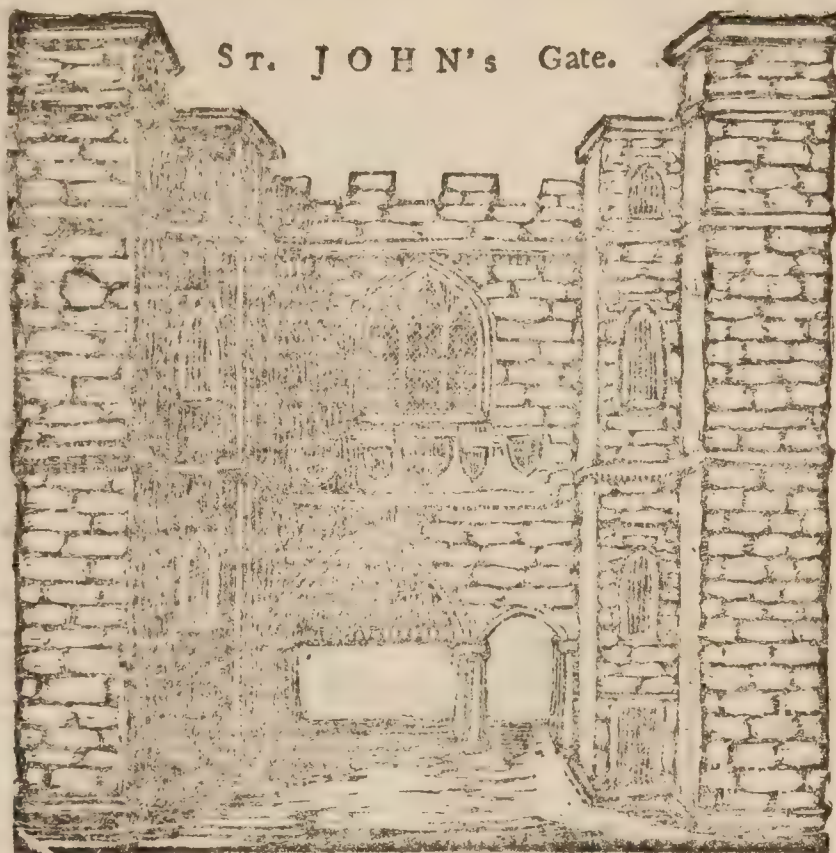 ST. JOHN's Gate.